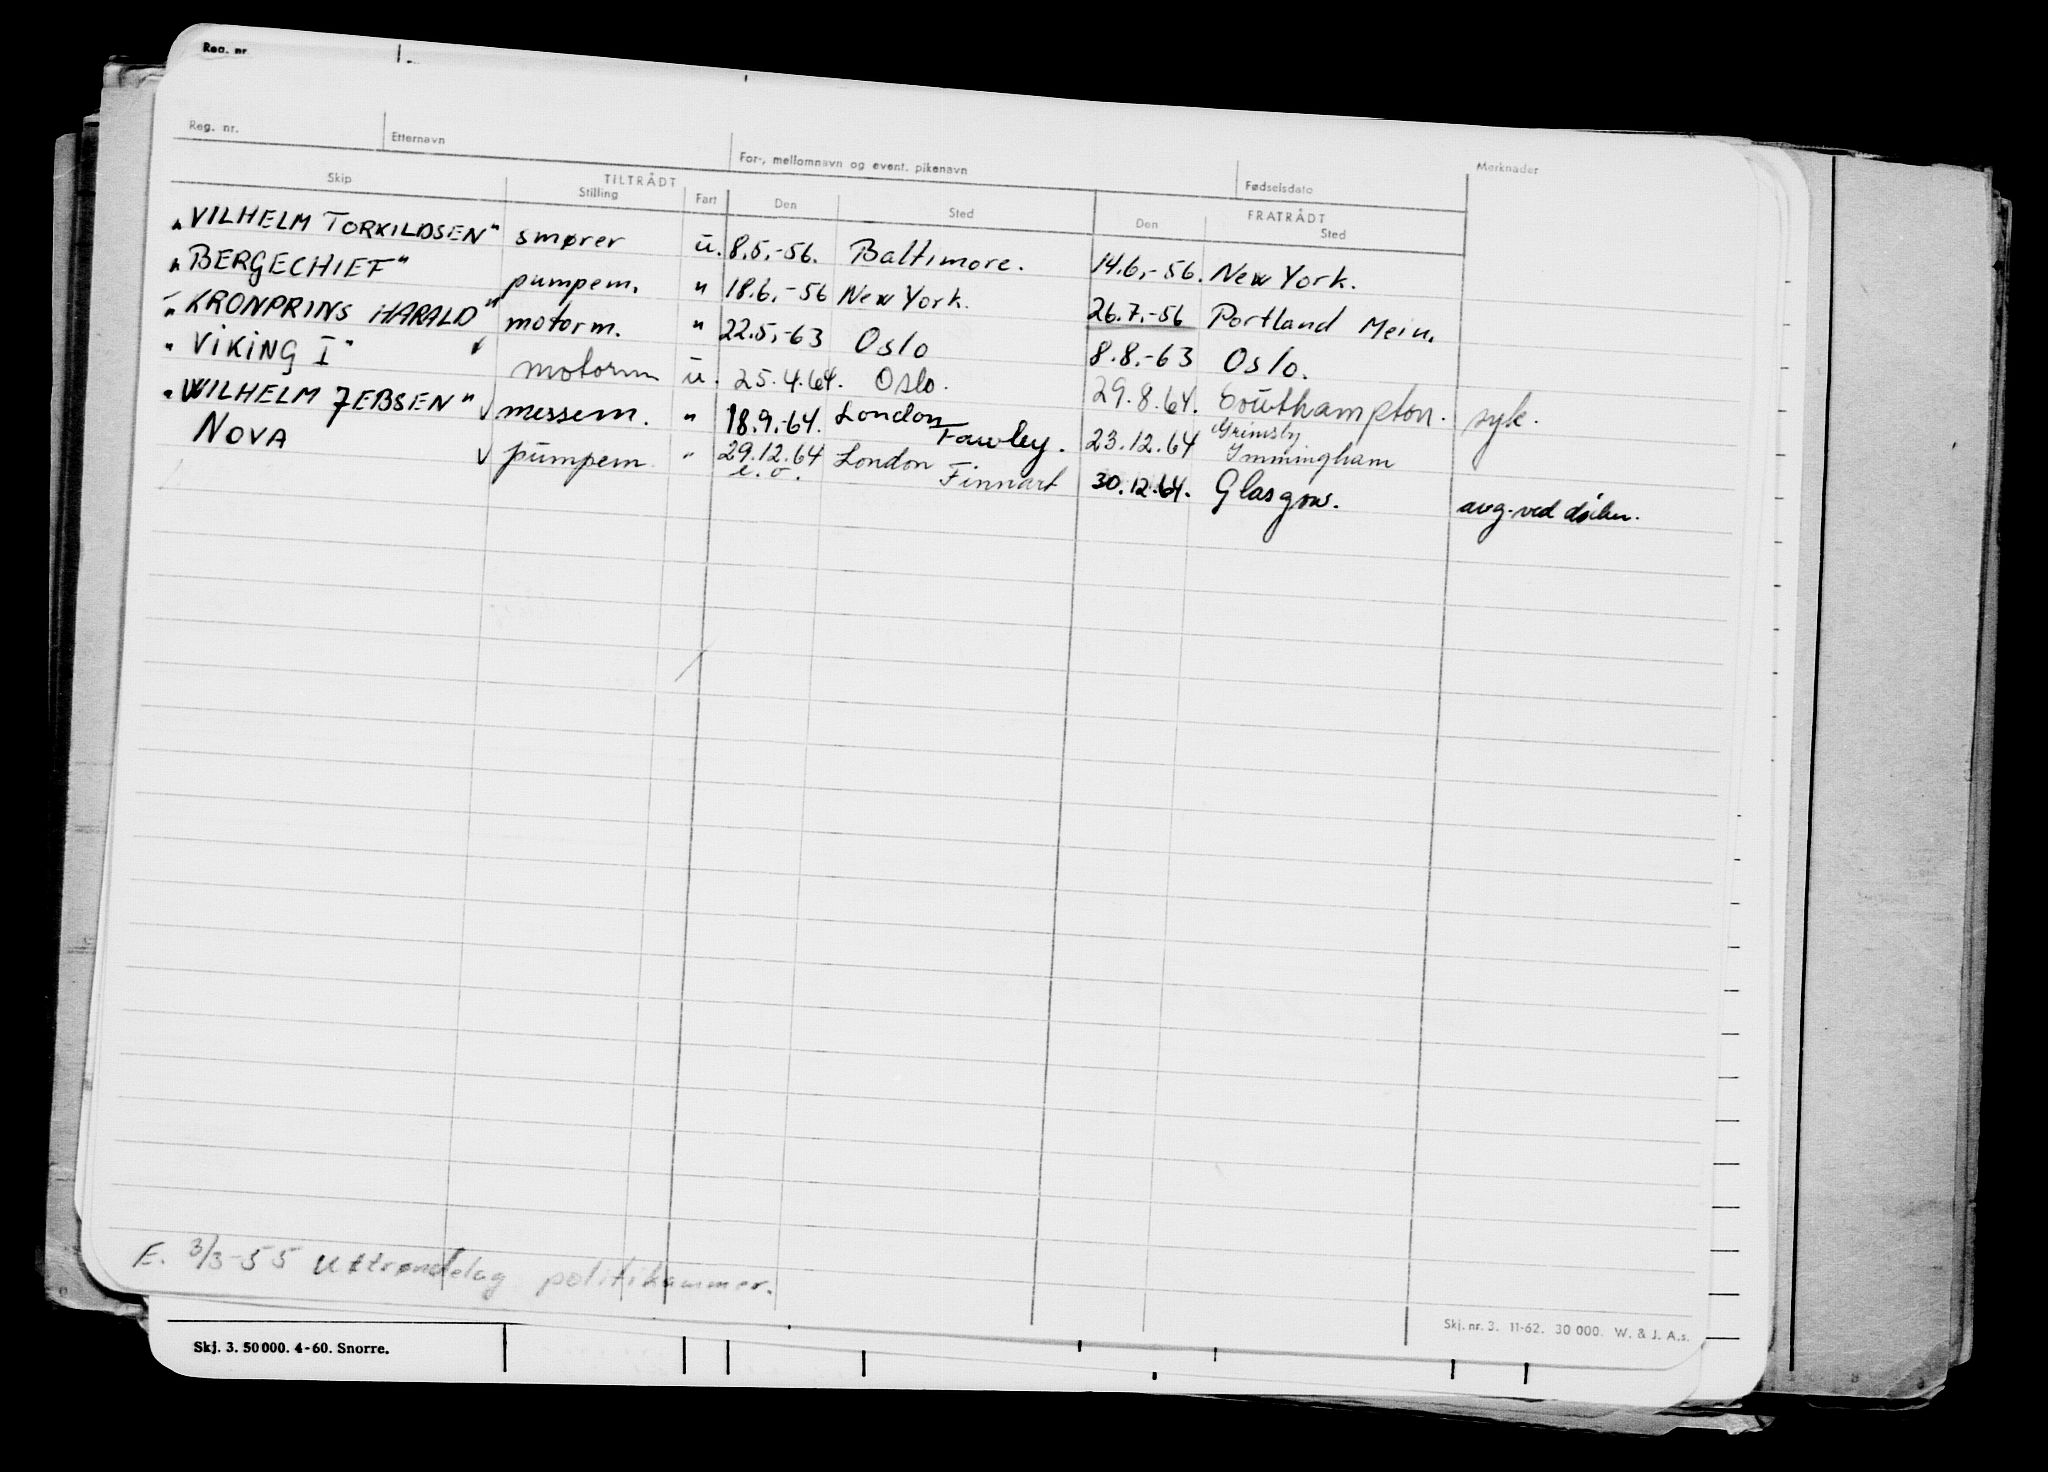 Reg. nr.
Reg. nr. Etternavn For-, mellomnavn og event. pikenavn Fødselsdato Merknader
Skip TILTRÅDT Stilling Fart Den Sted FRATRÅDT Den Sted
"VILHELM TORKILDSEN" smører u. 8.5.-56. Baltimore. 14.6.-56. New York.
"BERGECHIEF" pumpem. " 18.6.-56 New York. 26.7.-56 Portland Mein.
"KRONPRINS HARALD" motorm. " 22.5.-63 Oslo 8.8.-63 Oslo.
"VIKING I" motorm u. 25.4.64. Oslo. 29.8.64. Southampton. syk.
"WILHELM JEBSEN" messem. " 18.9.-64. London Fawley. 23.12.64 Grimsby Immingham
NOVA pumpem " 29.12.64 e.o. London Finnart 30.12.64. Glasgow. avg. ved
E. 3/3-55 Uttrøndelag politikammer.
Skj. nr. 3. 11-62. 30 000. W. & J. A.s.
Skj. 3. 50 000. 4-60. Snorre.